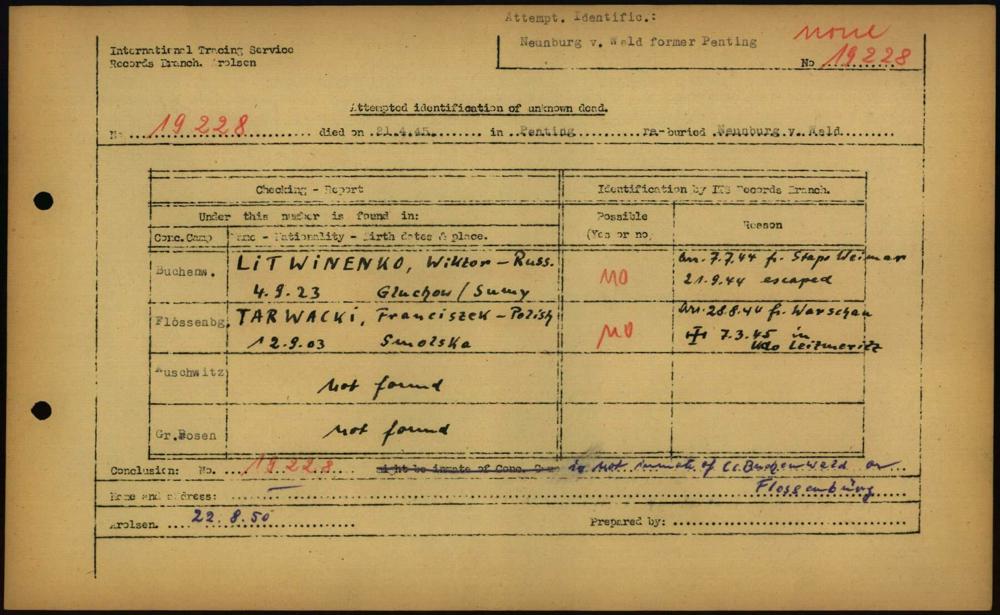 Attempt. Identific.:
Neunburg v. Wald former Penting
none
No 19228
International Tracing Service
Records Branch. Arolsen
Attempted identification of unknown dead.
No. 19 228 died on 21.4.45. in Penting re-buried Neunburg v. Wald
Checking - Report
Identification by ITS Records Branch.
Under this number is found in:
Possible
(Yes or no)
Reason
Conc. Camp
Name - Nationality - Birth dates & place.
Buchenw.
LITWINENKO, Wiktor - Russ.
4.9.23 Gluchow / Sumy
NO
arr. 7.7.44 fr. Stapo Weimar
21.9.44 escaped
Flossenbg.
TARWACKI, Franciszek - Polish
12.9.03 Smolska
NO
arr. 28.8.44 fr. Warschau
7.3.45 in
Kdo Leitmeritz
Auschwitz
not found
Gr.Rosen
not found
Conclusion: No. 19 228 might be inmate of Conc. is not inmate of CC. Buchenwald or
Flossenbürg
Name and address: —
Arolsen. 22.8.50 Prepared by: